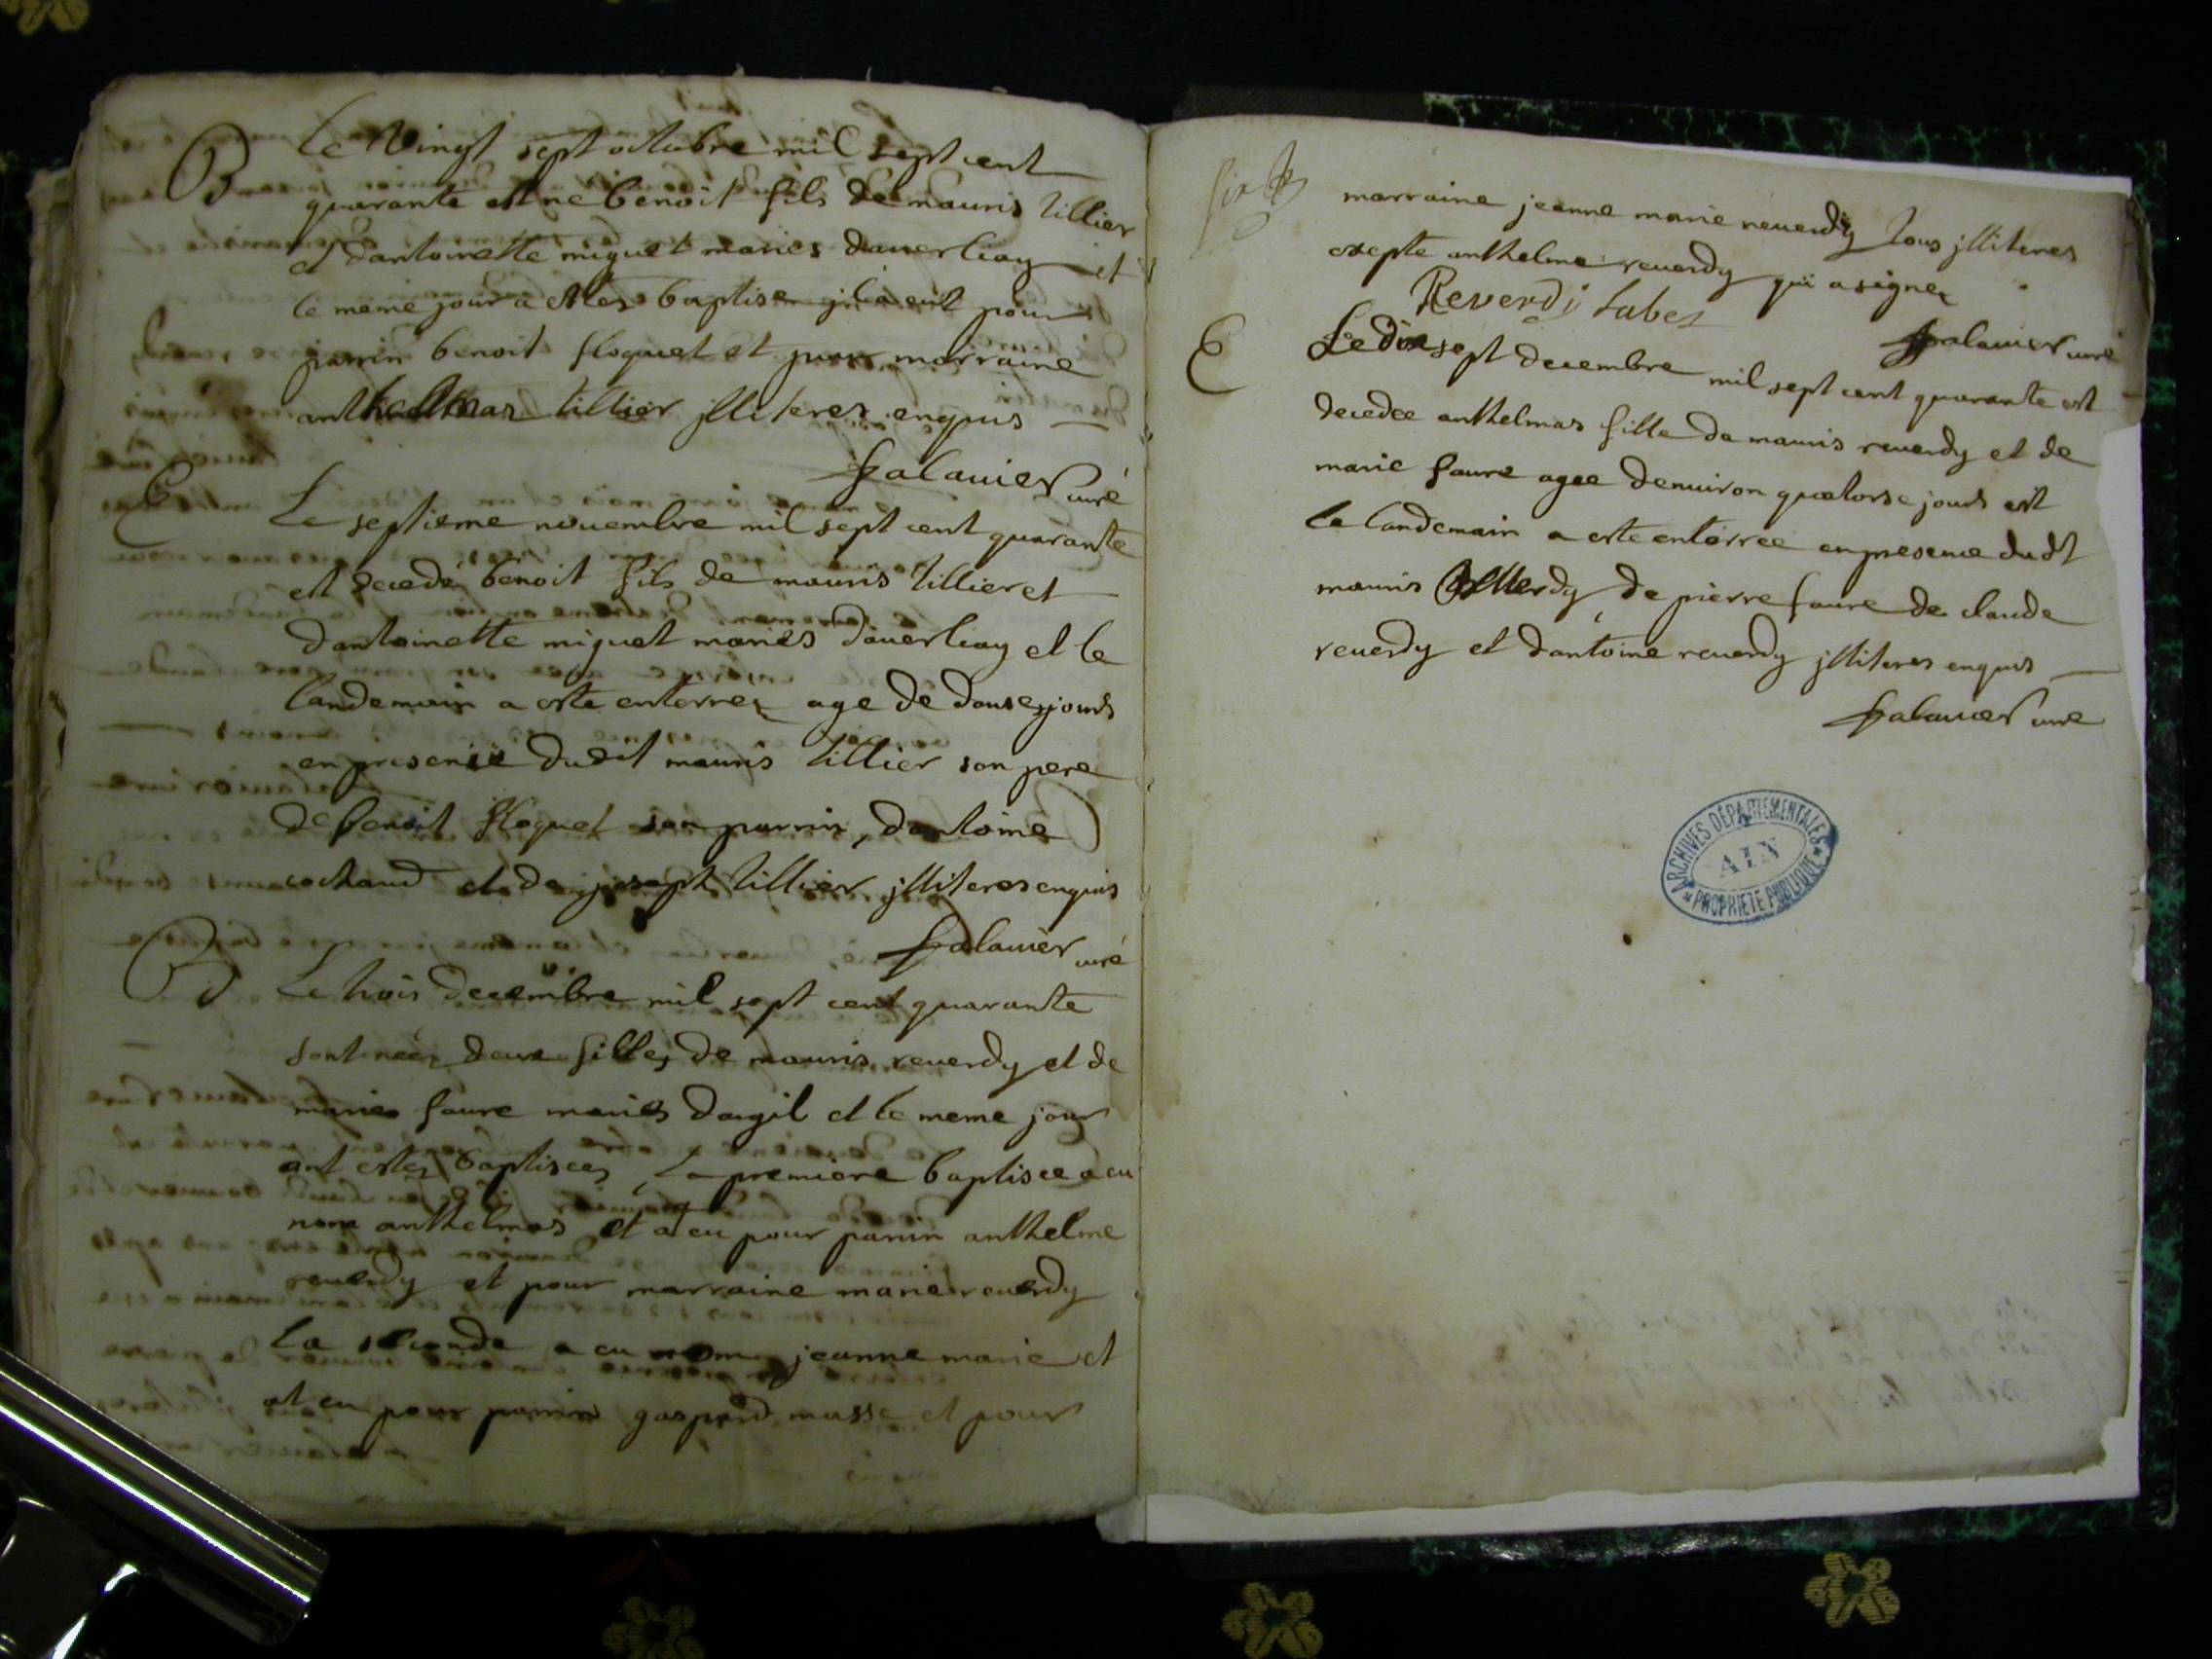 B
Le Vingt sept octobre mil sept cent
quarante est ne benoit fils de mauris tillier
et dantoinette miguet maries dauerliay et
le meme jour a estez baptise jl a eut pour
parrin benoit floquet et pour marraine
anthelmas tillier jlliteres enquis
falauier curé
E
Le septieme nouembre mil sept cent quarante
est decedé benoit fils de mauris tillier et
dantoinette miguet maries dauerliay et le
landemain a este enterrez age de douse jours
en presence dudit mauris tillier son pere
de benoit floquet son parrin, dantoine
cochaud et de joseph tillier jlliteres enquis
falauier curé
B
Le trois decembre mil sept cent quarante
sont neéz deux filles de mauris reuerdy et de
marie faure mariés dargil et le meme jour
ont estez baptisees, La premiere baptisee a eu
nom anthelmas et at eu pour parrin anthelme
reuerdy et pour marraine marie reuerdy
la seconde a eu nom jeanne marie et
at eu pour parrin gaspard musse et pour
marraine jeanne marie reuerdy tous jlliteres
exepte anthelme reuerdy qui a signez
Reverdy
falauier curé
E
Le dix sept decembre mil sept cent quarante est
decedée anthelmas fille de mauris reuerdy et de
marie faure agee denuiron quatorse jours est
le landemain a este enterrée en presence dudt
mauris reuerdy de pierre faure de claude
reuerdy et dantoine reuerdy jlliteres enquis
falauier curé
ARCHIVES DÉPARTEMENTALES
AIN
PROPRIETE PUBLIQUE